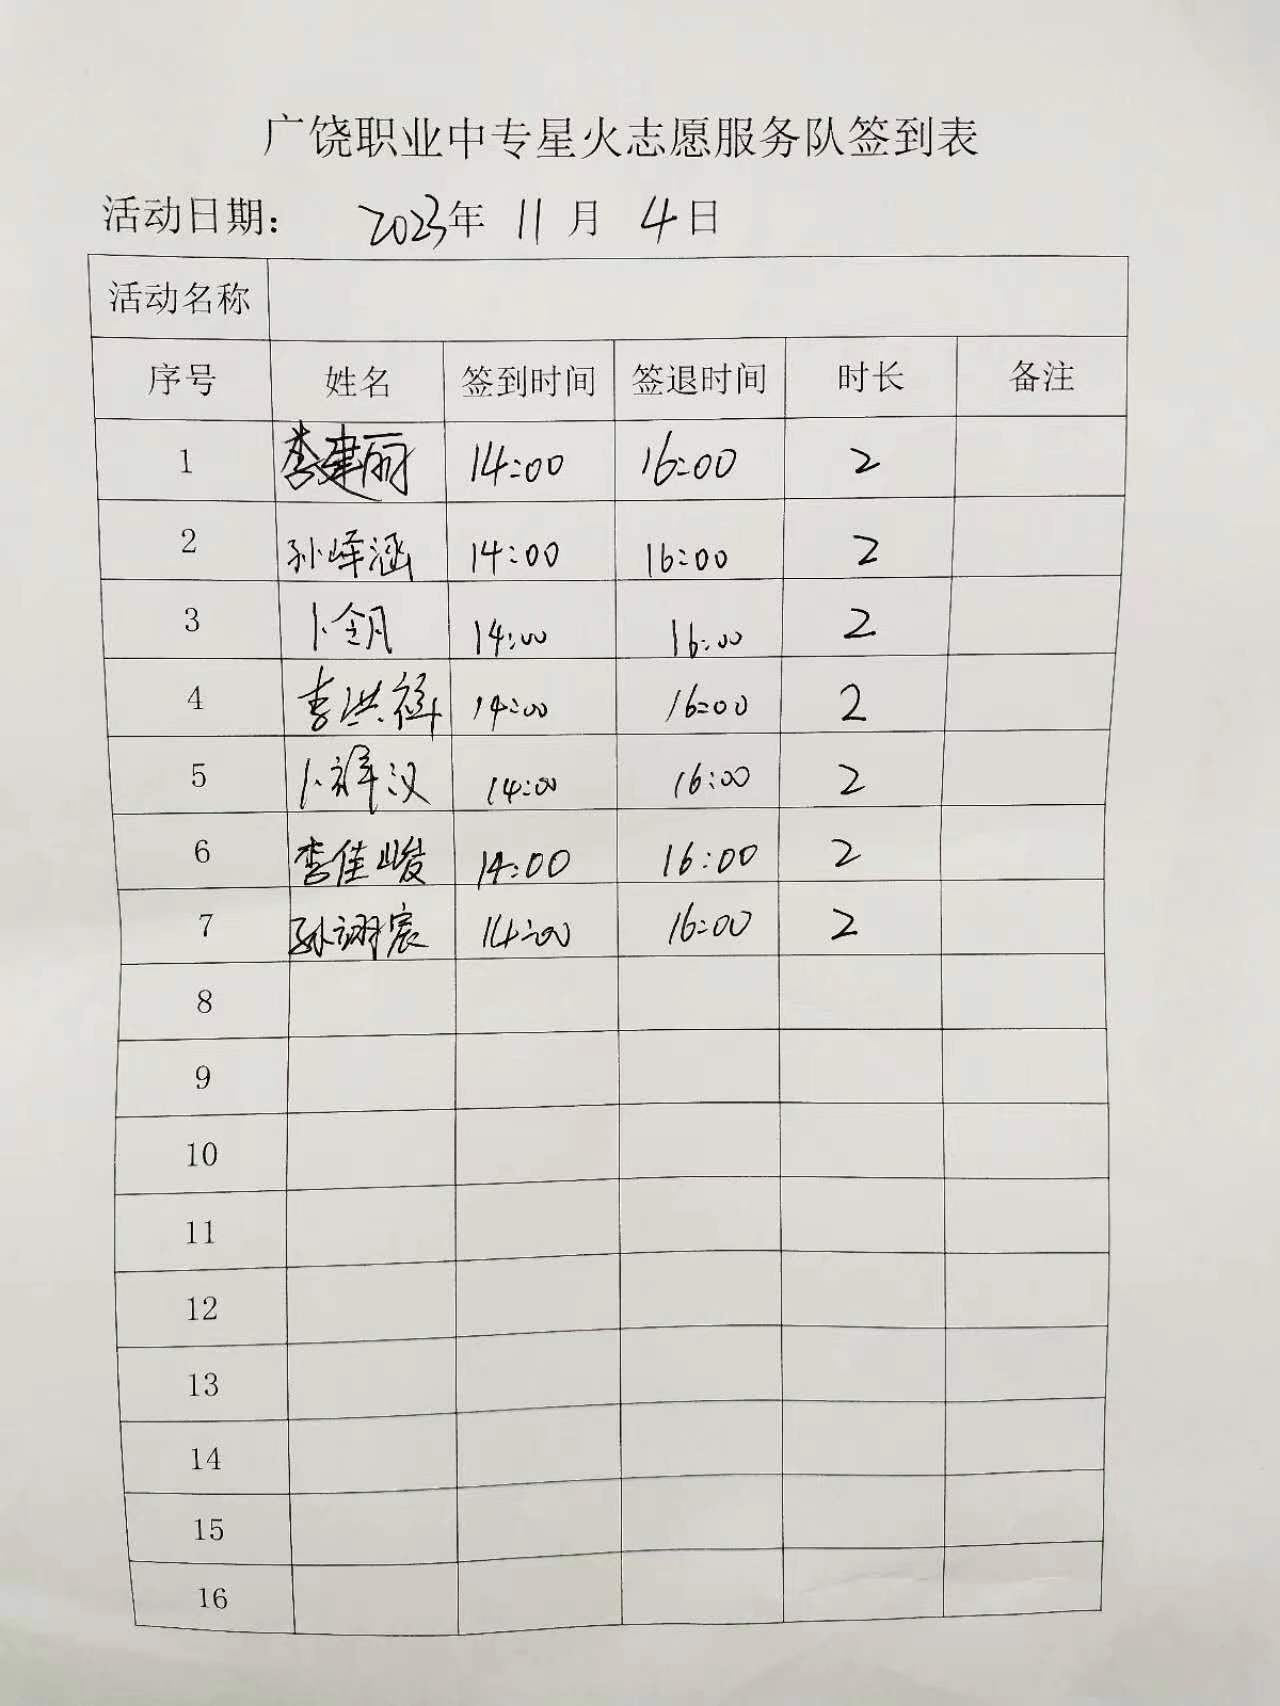 广饶职业中专星火志愿服务队签到表
活动日期： 2023年 11月 4日
活动名称
序号 姓名 签到时间 签退时间 时长 备注
1 李建丽 14:00 16:00 2
2 孙峄涵 14:00 16:00 2
3 14:00 16:00 2
4 李洪祥 14:00 16:00 2
5 卜祥汉 14:00 16:00 2
6 李佳峻 14:00 16:00 2
7 孙翊宸 14:00 16:00 2
8
9
10
11
12
13
14
15
16